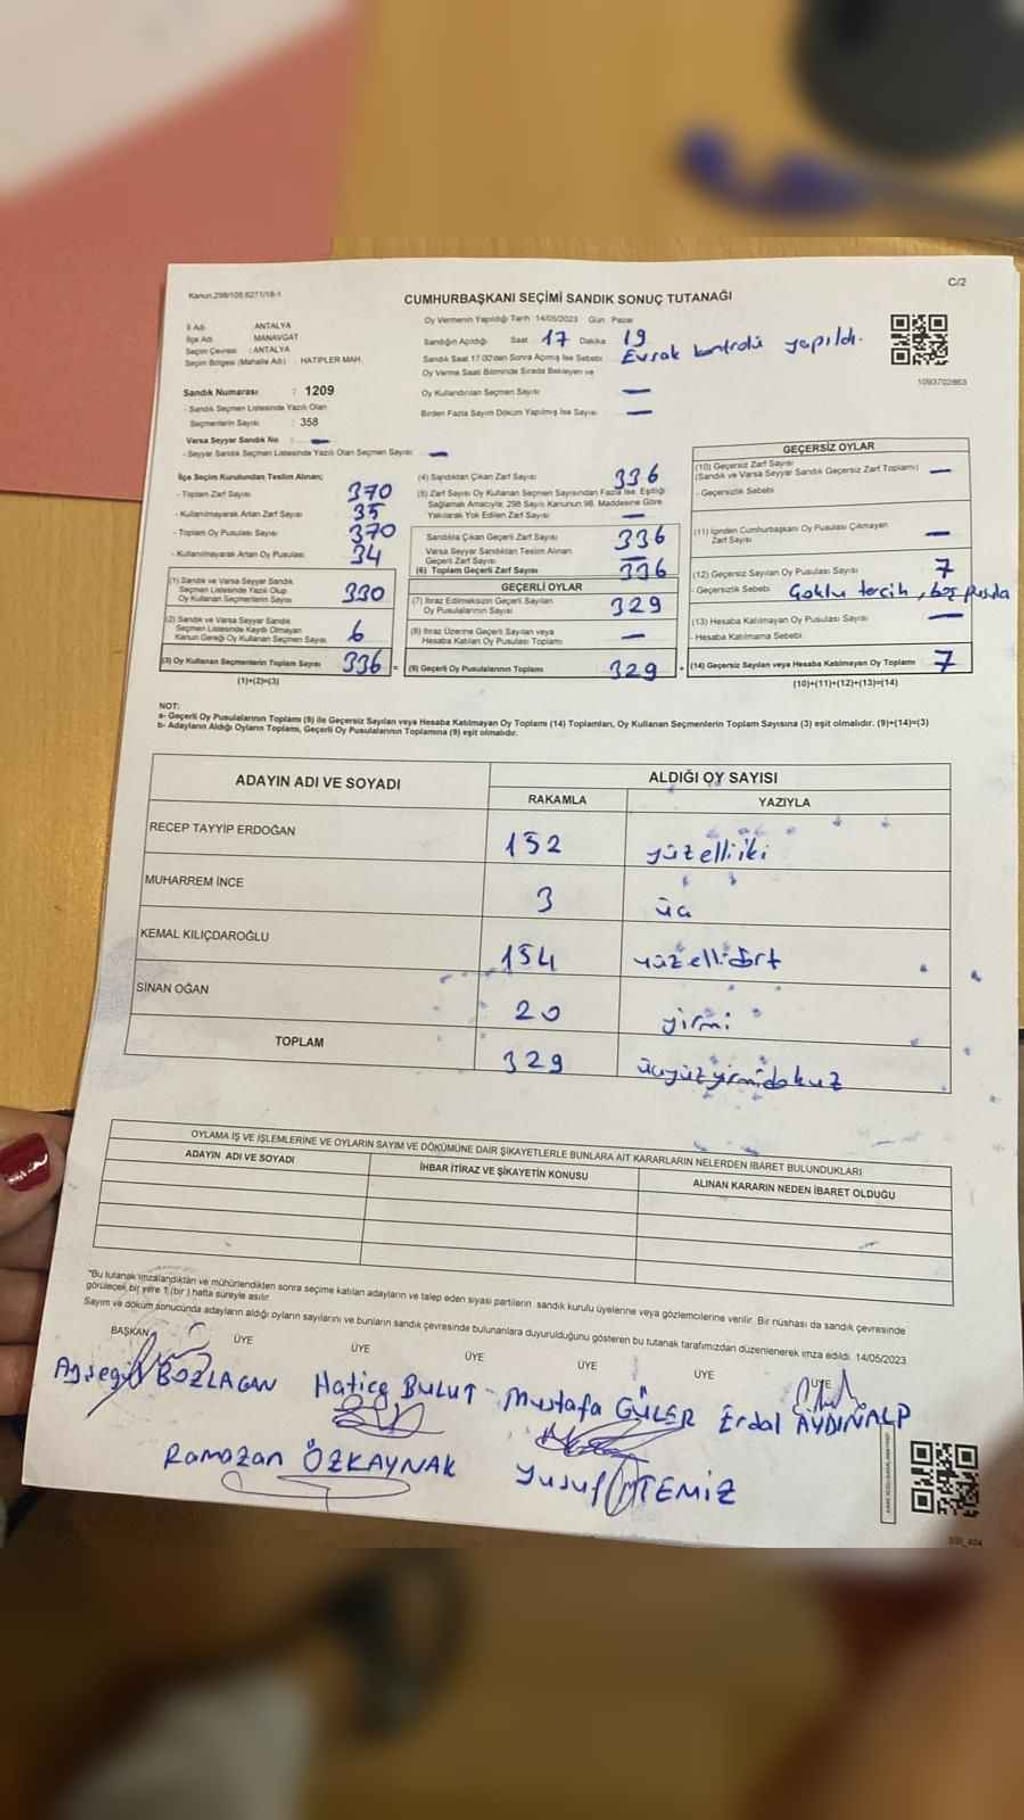 Kanun:298/105 6271/18-1
C/2
CUMHURBAŞKANI SEÇİMİ SANDIK SONUÇ TUTANAĞI
İl Adı : ANTALYA
İlçe Adı : MANAVGAT
Seçim Çevresi : ANTALYA
Seçim Bölgesi (Mahalle Adı) : HATİPLER MAH.
Oy Vermenin Yapıldığı Tarih :14/05/2023 Gün: Pazar
Sandığın Açıldığı Saat 17 Dakika 19
Sandık Saat 17:00'den Sonra Açılmış İse Sebebi Evrak kontrolü yapıldı.
Oy Verme Saati Bitiminde Sırada Bekleyen ve
Oy Kullandırılan Seçmen Sayısı —
Birden Fazla Sayım Döküm Yapılmış İse Sayısı —
1093702863
Sandık Numarası : 1209
- Sandık Seçmen Listesinde Yazılı Olan
Seçmenlerin Sayısı : 358
Varsa Seyyar Sandık No : —
- Seyyar Sandık Seçmen Listesinde Yazılı Olan Seçmen Sayısı : —
İlçe Seçim Kurulundan Teslim Alınan;
- Toplam Zarf Sayısı 370
- Kullanılmayarak Artan Zarf Sayısı 35
- Toplam Oy Pusulası Sayısı 370
- Kullanılmayarak Artan Oy Pusulası 34
(1) Sandık ve Varsa Seyyar Sandık
Seçmen Listesinde Yazılı Olup
Oy Kullanan Seçmenlerin Sayısı 330
(2) Sandık ve Varsa Seyyar Sandık
Seçmen Listesinde Kayıtlı Olmayan
Kanun Gereği Oy Kullanan Seçmen Sayısı 6
(3) Oy Kullanan Seçmenlerin Toplam Sayısı 336 =
(1)+(2)=(3)
(4) Sandıktan Çıkan Zarf Sayısı 336
(5) Zarf Sayısı Oy Kullanan Seçmen Sayısından Fazla İse, Eşitliği
Sağlamak Amacıyla, 298 Sayılı Kanunun 98. Maddesine Göre
Yakılarak Yok Edilen Zarf Sayısı —
Sandıkta Çıkan Geçerli Zarf Sayısı 336
Varsa Seyyar Sandıktan Teslim Alınan
Geçerli Zarf Sayısı —
(6) Toplam Geçerli Zarf Sayısı 336
GEÇERLİ OYLAR
(7) İtiraz Edilmeksizin Geçerli Sayılan
Oy Pusulalarının Sayısı 329
(8) İtiraz Üzerine Geçerli Sayılan veya
Hesaba Katılan Oy Pusulası Toplamı —
(9) Geçerli Oy Pusulalarının Toplamı 329 +
GEÇERSİZ OYLAR
(10) Geçersiz Zarf Sayısı
(Sandık ve Varsa Seyyar Sandık Geçersiz Zarf Toplamı) —
- Geçersizlik Sebebi
(11) İçinden Cumhurbaşkanı Oy Pusulası Çıkmayan
Zarf Sayısı —
(12) Geçersiz Sayılan Oy Pusulası Sayısı 7
- Geçersizlik Sebebi Çoklu tercih, boş pusula
(13) Hesaba Katılmayan Oy Pusulası Sayısı —
- Hesaba Katılmama Sebebi
(14) Geçersiz Sayılan veya Hesaba Katılmayan Oy Toplamı 7
(10)+(11)+(12)+(13)=(14)
NOT:
a- Geçerli Oy Pusulalarının Toplamı (9) ile Geçersiz Sayılan veya Hesaba Katılmayan Oy Toplamı (14) Toplamları, Oy Kullanan Seçmenlerin Toplam Sayısına (3) eşit olmalıdır. (9)+(14)=(3)
b- Adayların Aldığı Oyların Toplamı, Geçerli Oy Pusulalarının Toplamına (9) eşit olmalıdır.
ADAYIN ADI VE SOYADI
ALDIĞI OY SAYISI
RAKAMLA YAZIYLA
RECEP TAYYİP ERDOĞAN 152 yüzelliiki
MUHARREM İNCE 3 üç
KEMAL KILIÇDAROĞLU 154 yüzellidört
SİNAN OĞAN 20 yirmi
TOPLAM 329 üçyüzyirmidokuz
OYLAMA İŞ VE İŞLEMLERİNE VE OYLARIN SAYIM VE DÖKÜMÜNE DAİR ŞİKAYETLERLE BUNLARA AİT KARARLARIN NELERDEN İBARET BULUNDUKLARI
ADAYIN ADI VE SOYADI İHBAR İTİRAZ VE ŞİKAYETİN KONUSU ALINAN KARARIN NEDEN İBARET OLDUĞU
"Bu tutanak imzalandıktan ve mühürlendikten sonra seçime katılan adayların ve talep eden siyasi partilerin sandık kurulu üyelerine veya gözlemcilerine verilir. Bir nüshası da sandık çevresinde
görülecek bir yere 1 (bir ) hafta süreyle asılır.
Sayım ve döküm sonucunda adayların aldığı oyların sayılarını ve bunların sandık çevresinde bulunanlara duyurulduğunu gösteren bu tutanak tarafımızdan düzenlenerek imza edildi. 14/05/2023
BAŞKAN ÜYE ÜYE ÜYE ÜYE ÜYE ÜYE
Ayşegül BOZLAGAN Hatice BULUT - Mustafa GÜLER Erdal AYDINALP
Ramazan ÖZKAYNAK Yusuf TEMİZ